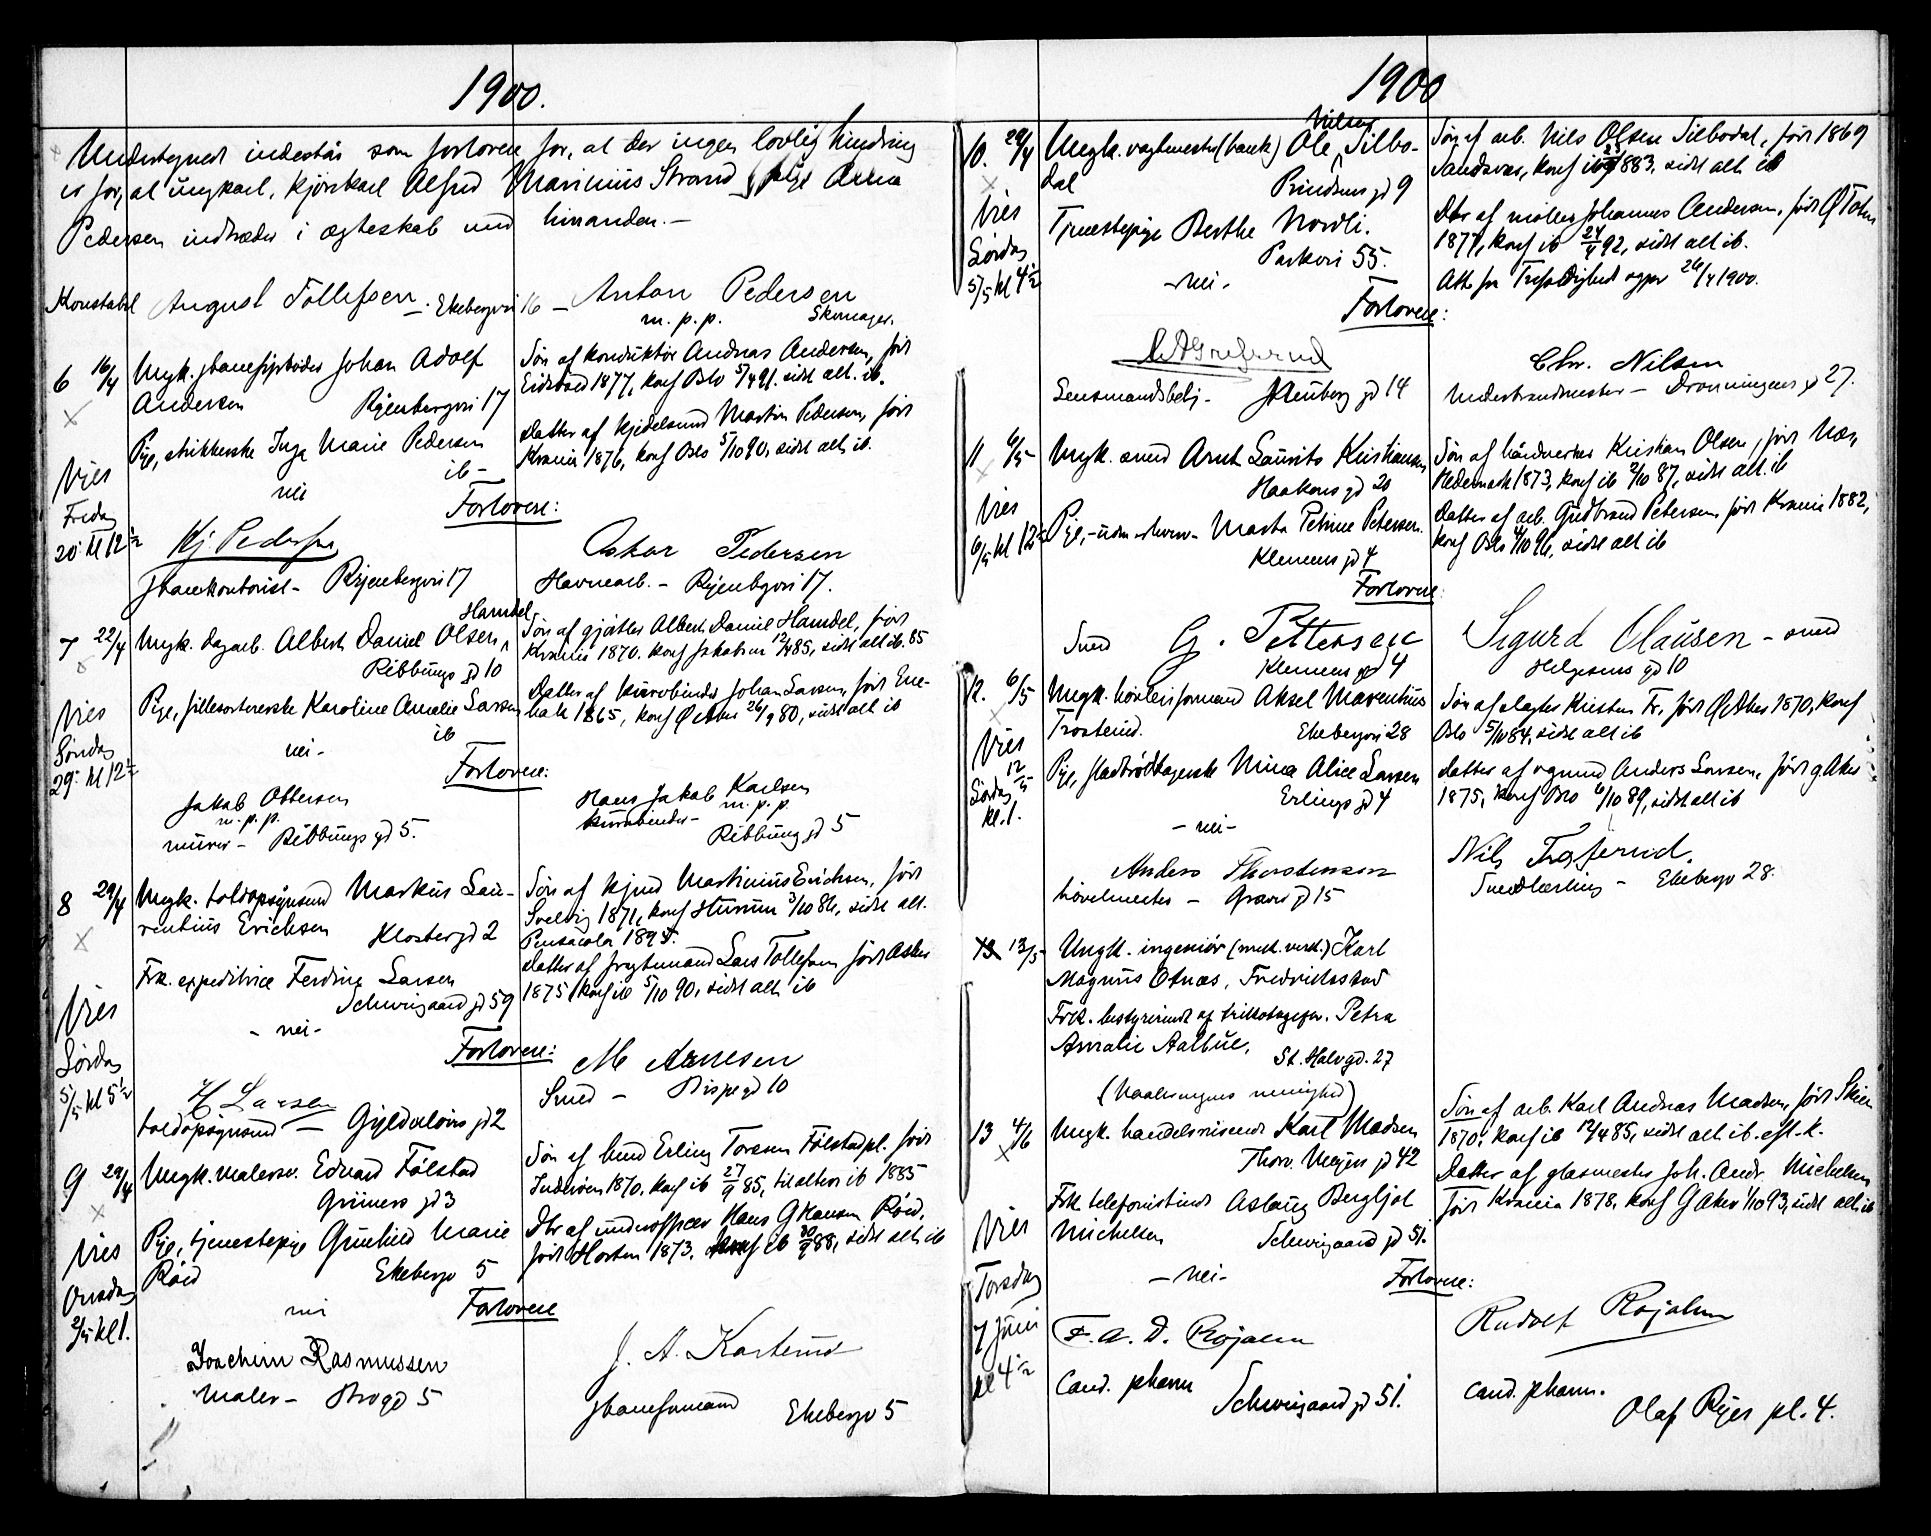 1900.
Undertegnede indestår som forlovere for, at der ingen lovlig hindring
er for, at ungkarl, kjørekarl Alfred Marinius Strand & pige Anna
Pedersen indtræder i ægteskab med hinanden. —
Konstabel August Tollefsen. Ekebergvei 16 — Anton Pedersen
m. p. p. Skomager.
6 16/4 Ungk. jbanefyrbøder Johan Adolf
Andersen Ryenbergvei 17
Pige, strikkerske Inga Marie Pedersen
ib —
nei
Søn af konduktør Andreas Andersen, født
Eidsvold 1877, konf Oslo 5/4 91. sidst alt. ib.
Datter af kjedelsmed Martin Pedersen, født
Krania 1876, konf Oslo 5/10 90, sidst alt ib.
Vies
Fredag
20. kl 12½
Forlovere:
Kj. Pedersen
jbanekontorist — Ryenbergvei 17
Oskar Pedersen
Havnearb. — Ryenbgvei 17.
7 22/4 Ungk. dagarb. Albert Daniel Olsen, Hamdel
Ribbungs gd 10
Pige, fillesortererske Karoline Amalie Larsen
ib
nei —
Søn af gjørtler Albert Daniel Hamdel, født
Krania 1870. konf Jakobs 12/4 85, sidst alt ib. 85
Datter af kurvebinder Johan Larsen, født Ene-
bak 1865, konf Ø Aker 26/9 80, sidst alt ib
Vies
Søndag
29. kl 12½
Forlovere:
Jakob Ottersen
m. p. p.
murer — Ribbungs gd 5.
Hans Jakob Karlsen
m. p. p.
kurvebinder —
Ribbung gd 5
8 29/4 Ungk. toldopsynsmd Markus Lau-
rentius Erichsen Klostergd 2
Frk. expeditrice Ferdine Larsen
Schweigaard gd 59
— nei —
Søn af Martinius Erichsen, født
Svelvig 1871, konf Hurum 3/10 86, sidst alt.
Pensacola 1895.
Datter af Lars Tollefsen født Asker
1875, konf ib 5/10 90, sidst alt ib
Vies
Lørdag
5/5 kl 5½
Forlovere:
H Larsen
toldopsynsmd — Gyldenløves gd 2
M Arnesen
Smed — Bispegd 10
9 29/4 Ungk. malersv. Edvard Følstad
Grüners gd 3
Pige, tjenestepige Gunhild Marie
Röid Ekebergv 5
nei
Søn af Erling Toresen Følstadpl. født
Inderøen 1870. konf ib 27/9 85, til alters ib 1885
Dtr af underofficer Hans G Hansen Röid,
født Horten 1873. konf ib 30/9 88, sidst alt ib
Vies
Onsdag
2/5 kl 1.
Forlovere
Joachim Rasmussen
Maler — Brogd 5
J. A. Karterud
jbaneformand Ekebergv 5
1900
10. 29/4 Ungk. vagtmester (bank) Ole Nilsen Silbo-
dal Prindsens gd 9
Tjenestepige Berthe Nordli.
Parkvei 55.
— nei —
Søn af arb. Nils Olsen Silbodal, født 1869
Sandsvær, konf ib 1883, sidst alt. ib
Dtr af møller Johannes Andersen, født Ø Toten
1877, konf ib 24/4 92, sidst alt ib.
Att. fra Trefoldighed 26/4 1900.
Vies
Lørdag
5/5 kl 4½
Forlovere:
Lensmandsbetj — gd 14
Chr. Nilsen
Underbrandmester — Dronningens gd 27.
11 6/5 Ungk. smed Arnt Laurits Kristiansen
Haakons gd 20
Pige, Marta Petrine Petersen.
Klemens gd 4
Søn af håndverker Kristian Olsen, født Næs,
Hedemark 1873, konf ib 2/10 87, sidst alt. ib
Datter af arb. Gudbrand Petersen, født Krania 1882,
konf Oslo 4/10 96, sidst alt ib
Vies
6/5 kl 12½
Forlovere:
Smed G. Pettersen
Klemens gd 4
Sigurd Clausen — smed
Helgesens gd 10
12. 6/5 Ungk. høvleriformand Aksel Marentius
Trosterud. Ekebergvei 28
Pige, Nina Alice Larsen
Erlings gd 4
— nei —
Søn af slagter Kristen Tr., født Ø Aker 1870, konf
Oslo 5/10 84, sidst alt ib
Datter af vognmd Anders Larsen, født g Aker
1875, konf Oslo 6/10 89, sidst alt ib
Vies
12/5
Lørdag
kl. 1.
Anders Thorstensen
høvelmester — gd 15
Nils Trosterud.
Smedlærling — Ekebergv 28.
13 13/5 Ungk. ingeniör (mek. verk.) Karl
Magnus Otnæs, Fredriksstad
Frk. bestyrerinde af trikotagefor. Petra
Amalie Aalbue,
St. Halvgd. 27
(Vaalerengens menighed)
13 4/6 Ungk. handelsreisende Karl Madsen
Thorv. Meyers gd 42
Frk telefonistinde Aslaug Bergljot
Michelsen Schweigaard gd 51.
— nei —
Søn af arb. Karl Andreas Madsen, født Skien
1870, konf ib 12/4 85, sidst alt. ib. eft. k.
Datter af glasmester Joh. Andr. Michelsen
født Krania 1878, konf G Aker 1/10 93, sidst alt. ib
Vies
Torsdag
7 juni
kl 4½
Forlovere:
F. A. D. Rojahn
Cand. pharm
Schweigaard gd 51.
Rudolf Rojahn
cand. pharm.
Olaf Ryes pl. 4.